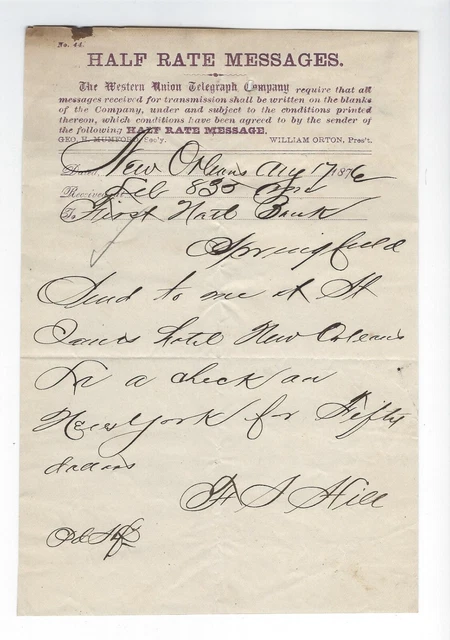 No. 44.
HALF RATE MESSAGES.
The Western Union Telegraph Company require that all
messages received for transmission shall be written on the blanks
of the Company, under and subject to the conditions printed
thereon, which conditions have been agreed to by the sender of
the following HALF RATE MESSAGE.
GEO. H. MUMFORD, Sec'y. WILLIAM ORTON, Pres't.
Dated, New Orleans Aug 17 1876
Received at Feb 835
To First Natl Bank
Springfield
Send to me at St
James hotel New Orleans
La a check on
New York for Fifty
dollars
H S Hill